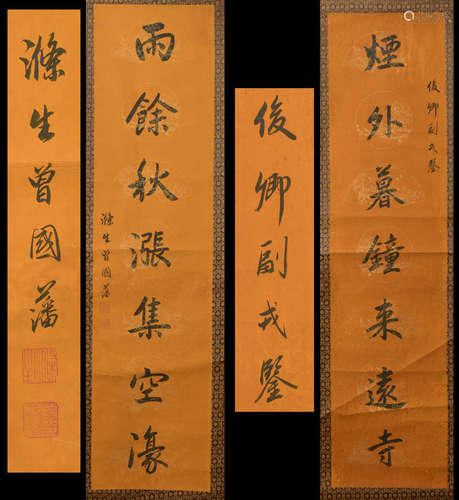 煙外暮鐘来遠寺
俊卿副戎鑒
俊卿副戎鑒
雨餘秋漲集空濠
滌生曾國藩
滌生曾國藩